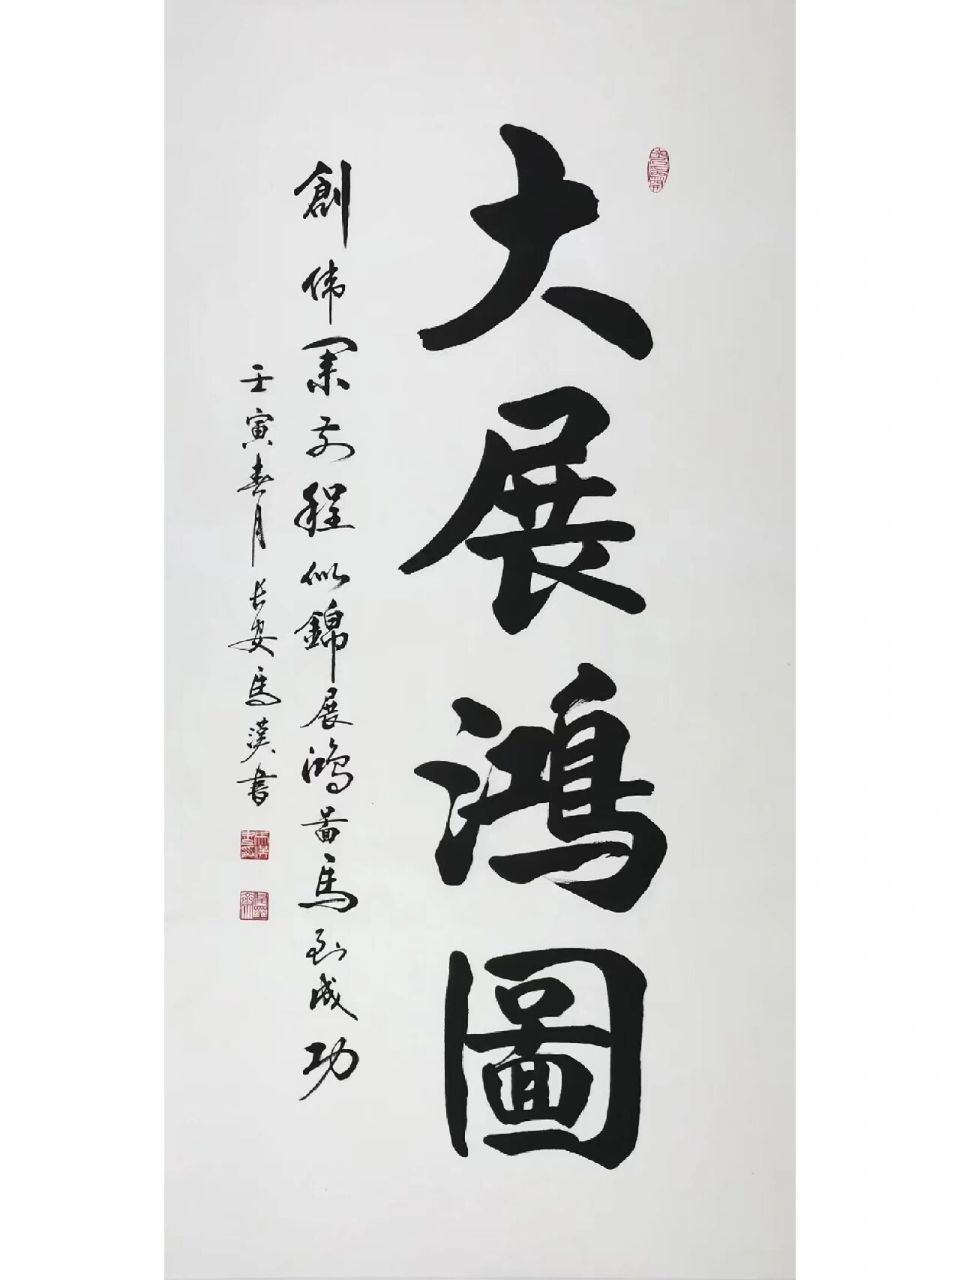 大展鴻圖
創伟業前程似錦展鴻啚馬到成功
壬寅春月长安馬漢書